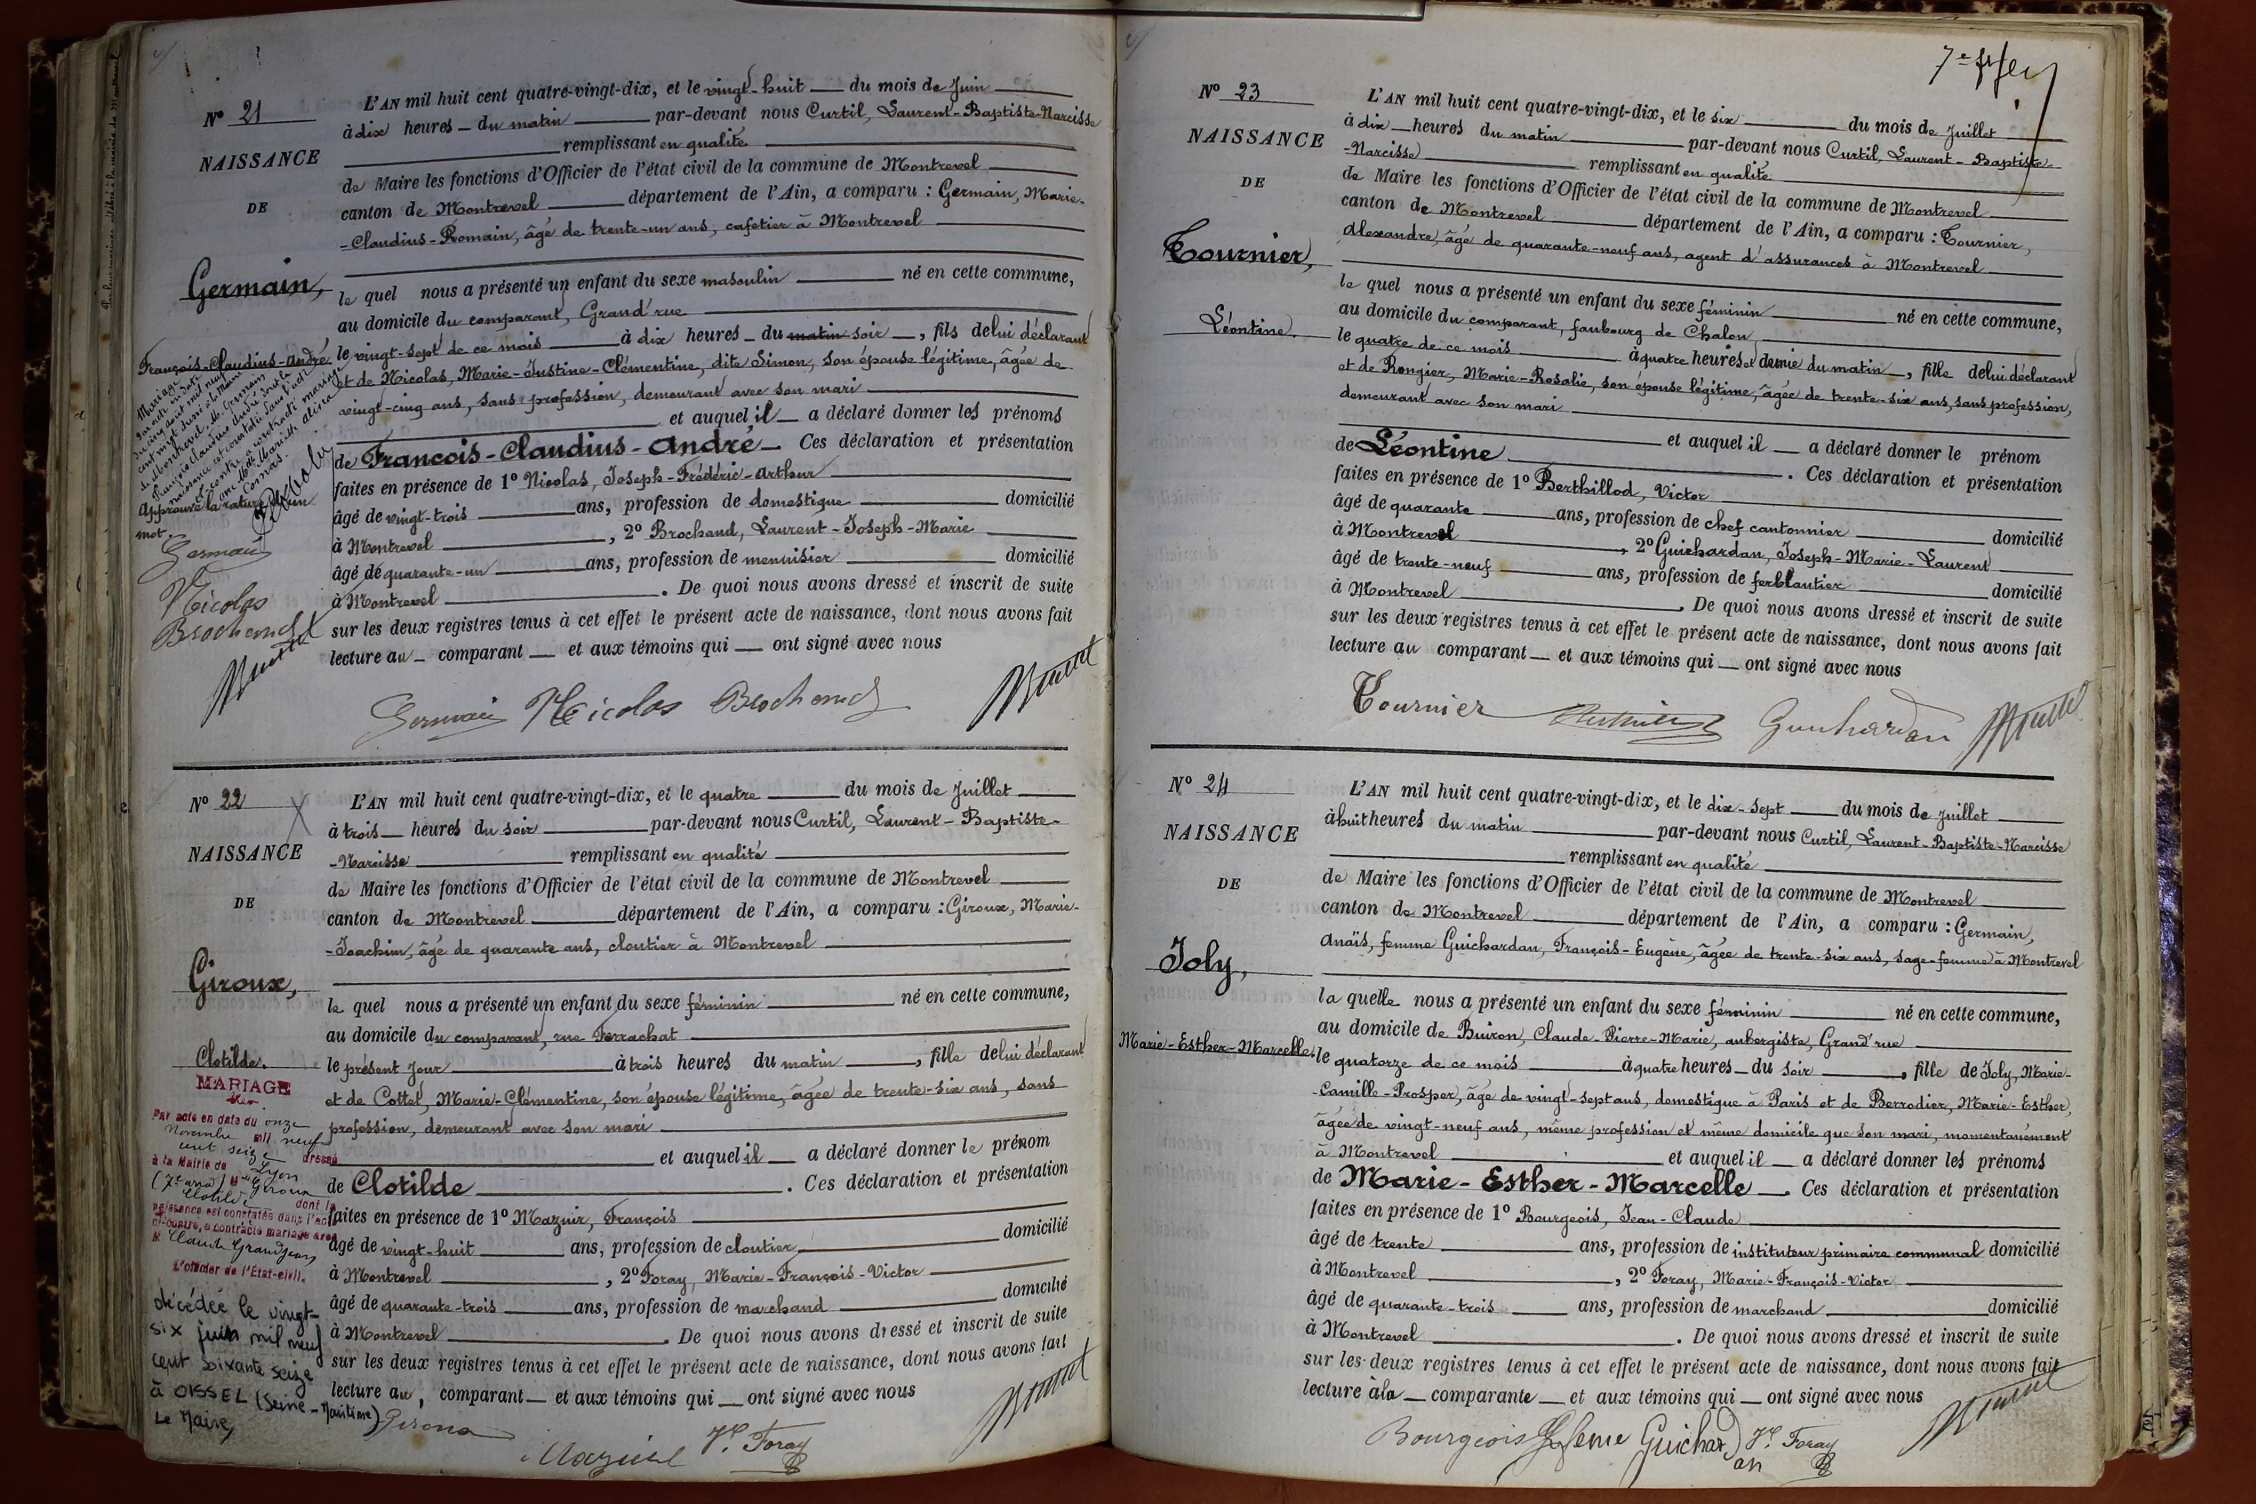 Nº 21
NAISSANCE
DE
Germain,
François-Claudius-André
L'AN mil huit cent quatre-vingt-dix, et le vingt-huit du mois de Juin
à dix heures du matin par-devant nous Curtil, Laurent-Baptiste-Narcisse
remplissant en qualité
de Maire les fonctions d'Officier de l'état civil de la commune de Montrevel
canton de Montrevel département de l'Ain, a comparu : Germain, Marie-
-Claudius-Romain, âgé de trente-un ans, cafetier à Montrevel
le quel nous a présenté un enfant du sexe masculin né en cette commune,
au domicile du comparant, Grand'rue
le vingt-sept de ce mois à dix heures du matin soir, fils de lui déclarant
et de Nicolas, Marie-Justine-Clémentine, dite Simon, son épouse légitime, âgée de
vingt-cinq ans, sans profession, demeurant avec son mari
et auquel il a déclaré donner les prénoms
de François-Claudius-André Ces déclaration et présentation
faites en présence de 1º Nicolas, Joseph-Frédéric-Arthur
âgé de vingt-trois ans, profession de domestique domicilié
à Montrevel, 2º Brochand, Laurent-Joseph-Marie
âgé de quarante-un ans, profession de menuisier domicilié
à Montrevel. De quoi nous avons dressé et inscrit de suite
sur les deux registres tenus à cet effet le présent acte de naissance, dont nous avons fait
lecture au comparant et aux témoins qui ont signé avec nous
Mariage
Par acte en date
Approuvé la rature d'un
mot.
Germain
Nicolas
Brochand
Germain Nicolas Brochand
Nº 22
NAISSANCE
DE
Giroux,
Clotilde.
L'AN mil huit cent quatre-vingt-dix, et le quatre du mois de Juillet
à trois heures du soir par-devant nous Curtil, Laurent-Baptiste-
-Narcisse remplissant en qualité
de Maire les fonctions d'Officier de l'état civil de la commune de Montrevel
canton de Montrevel département de l'Ain, a comparu : Giroux, Marie-
-Joachim, âgé de quarante ans, cloutier à Montrevel
le quel nous a présenté un enfant du sexe féminin né en cette commune,
au domicile du comparant, rue Ferrachat
le présent jour à trois heures du matin, fille de lui déclarant
et de Cottel, Marie-Clémentine, son épouse légitime, âgée de trente-six ans, sans
profession, demeurant avec son mari
et auquel il a déclaré donner le prénom
de Clotilde. Ces déclaration et présentation
faites en présence de 1º Maznir, François
âgé de vingt-huit ans, profession de cloutier domicilié
à Montrevel, 2º Foray, Marie-François-Victor
âgé de quarante-trois ans, profession de marchand domicilié
à Montrevel. De quoi nous avons dressé et inscrit de suite
sur les deux registres tenus à cet effet le présent acte de naissance, dont nous avons fait
lecture au comparant et aux témoins qui ont signé avec nous
MARIAGE
Par acte en date du onze
Novembre mil neuf
cent seize dressé
à la Mairie de Lyon
(7e arrd) Mlle Giroux
Clotilde dont la
naissance est constatée dans l'acte
ci-contre, a contracté mariage avec
M Claude Grandjean
L'officier de l'État-civil.
décédée le vingt-
six juin mil neuf
cent soixante seize
à OISSEL (Seine-Maritime)
Le Maire,
Giroux
Vr Foray
Nº 23
NAISSANCE
DE
Tournier,
Léontine.
L'AN mil huit cent quatre-vingt-dix, et le six du mois de Juillet
à dix heures du matin par-devant nous Curtil, Laurent-Baptiste-
-Narcisse remplissant en qualité
de Maire les fonctions d'Officier de l'état civil de la commune de Montrevel
canton de Montrevel département de l'Ain, a comparu : Tournier,
Alexandre, âgé de quarante-neuf ans, agent d'assurances à Montrevel
le quel nous a présenté un enfant du sexe féminin né en cette commune,
au domicile du comparant, faubourg de Chalon
le quatre de ce mois à quatre heures et demie du matin, fille de lui déclarant
et de Rongier, Marie-Rosalie, son épouse légitime, âgée de trente-six ans, sans profession,
demeurant avec son mari
et auquel il a déclaré donner le prénom
de Léontine. Ces déclaration et présentation
faites en présence de 1º Berthillod, Victor
âgé de quarante ans, profession de chef cantonnier domicilié
à Montrevel, 2º Guichardan, Joseph-Marie-Laurent
âgé de trente-neuf ans, profession de ferblantier domicilié
à Montrevel. De quoi nous avons dressé et inscrit de suite
sur les deux registres tenus à cet effet le présent acte de naissance, dont nous avons fait
lecture au comparant et aux témoins qui ont signé avec nous
Tournier Guichardan
Nº 24
NAISSANCE
DE
Joly,
Marie-Esther-Marcelle.
L'AN mil huit cent quatre-vingt-dix, et le dix-sept du mois de Juillet
à huit heures du matin par-devant nous Curtil, Laurent-Baptiste-Narcisse
remplissant en qualité
de Maire les fonctions d'Officier de l'état civil de la commune de Montrevel
canton de Montrevel département de l'Ain, a comparu : Germain,
Anaïs, femme Guichardan, François-Eugène, âgée de trente-six ans, sage-femme à Montrevel
la quelle nous a présenté un enfant du sexe féminin né en cette commune,
au domicile de Buiron, Claude-Pierre-Marie, aubergiste, Grand'rue
le quatorze de ce mois à quatre heures du soir, fille de Joly, Marie-
-Camille-Prosper, âgé de vingt-sept ans, domestique à Paris et de Berrodier, Marie-Esther,
âgée de vingt-neuf ans, même profession et même domicile que son mari, momentanément
à Montrevel et auquel il a déclaré donner les prénoms
de Marie-Esther-Marcelle. Ces déclaration et présentation
faites en présence de 1º Bourgeois, Jean-Claude
âgé de trente ans, profession de instituteur primaire communal domicilié
à Montrevel, 2º Foray, Marie-François-Victor
âgé de quarante-trois ans, profession de marchand domicilié
à Montrevel. De quoi nous avons dressé et inscrit de suite
sur les deux registres tenus à cet effet le présent acte de naissance, dont nous avons fait
lecture à la comparante et aux témoins qui ont signé avec nous
Bourgeois feme Guichardan Vr Foray